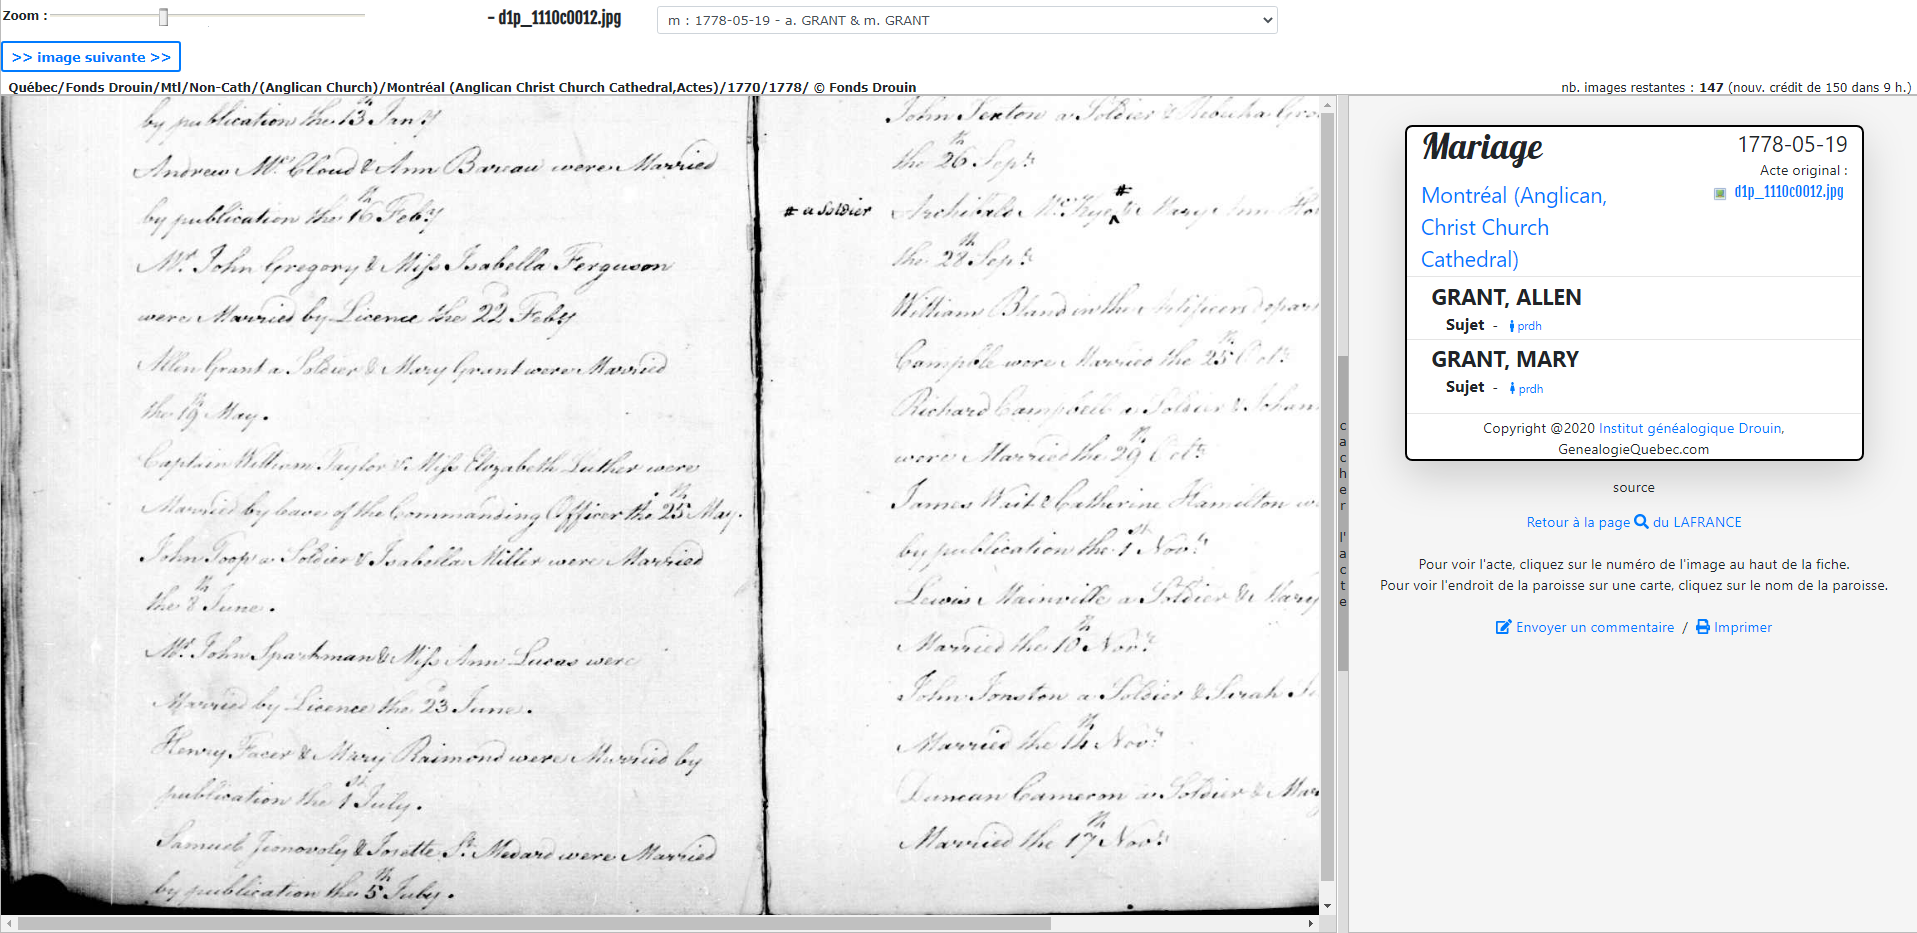 Zoom :
– d1p_1110c0012.jpg
m : 1778-05-19 - a. GRANT & m. GRANT
>> image suivante >>
Québec/Fonds Drouin/Mtl/Non-Cath/(Anglican Church)/Montréal (Anglican Christ Church Cathedral,Actes)/1770/1778/ © Fonds Drouin
nb. images restantes : 147 (nouv. crédit de 150 dans 9 h.)
by publication the 13th Jany
Andrew Mc Cloud & Ann Bareau were Married
by publication the 16th Feby
Mr. John Gregory & Miss Isabella Ferguson
were Married by Licence the 22d Feby
Allen Grant a Soldier & Mary Grant were Married
the 19th May.
Captain William Taylor & Miss Elizabeth Luther were
Married by leave of the Commanding Officer the 25th May.
John Toop a Soldier & Isabella Miller were Married
the 8th June.
Mr. John Sparkman & Miss Ann Lucas were
Married by Licence the 23d June.
Henry Facer & Mary Raimond were Married by
publication the 1st July.
Samuel & Josette St. Medard were Married
by publication the 5th July.
John Sexton a Soldier &
the 26th Sept.
# a Soldier
Archibald Mc Kye # & Mary Ann
the 28th Sept.
William Bland in the Artificers depar
Campble were Married the 25th Octr.
Richard Campbell a Soldier & Johan
were Married the 29th Octr.
James Wait & Catherine Hamilton w
by publication the 1st Novr.
Lewis Mainville a Soldier & Mary
Married the 10th Novr.
John Jonston a Soldier & Sarah
Married the 14th Novr.
Duncan Cameron a Soldier & Mar
Married the 17th Novr.
cacher l'acte
Mariage
1778-05-19
Acte original :
d1p_1110c0012.jpg
Montréal (Anglican,
Christ Church
Cathedral)
GRANT, ALLEN
Sujet - prdh
GRANT, MARY
Sujet - prdh
Copyright @2020 Institut généalogique Drouin,
GenealogieQuebec.com
source
Retour à la page du LAFRANCE
Pour voir l'acte, cliquez sur le numéro de l'image au haut de la fiche.
Pour voir l'endroit de la paroisse sur une carte, cliquez sur le nom de la paroisse.
Envoyer un commentaire / Imprimer